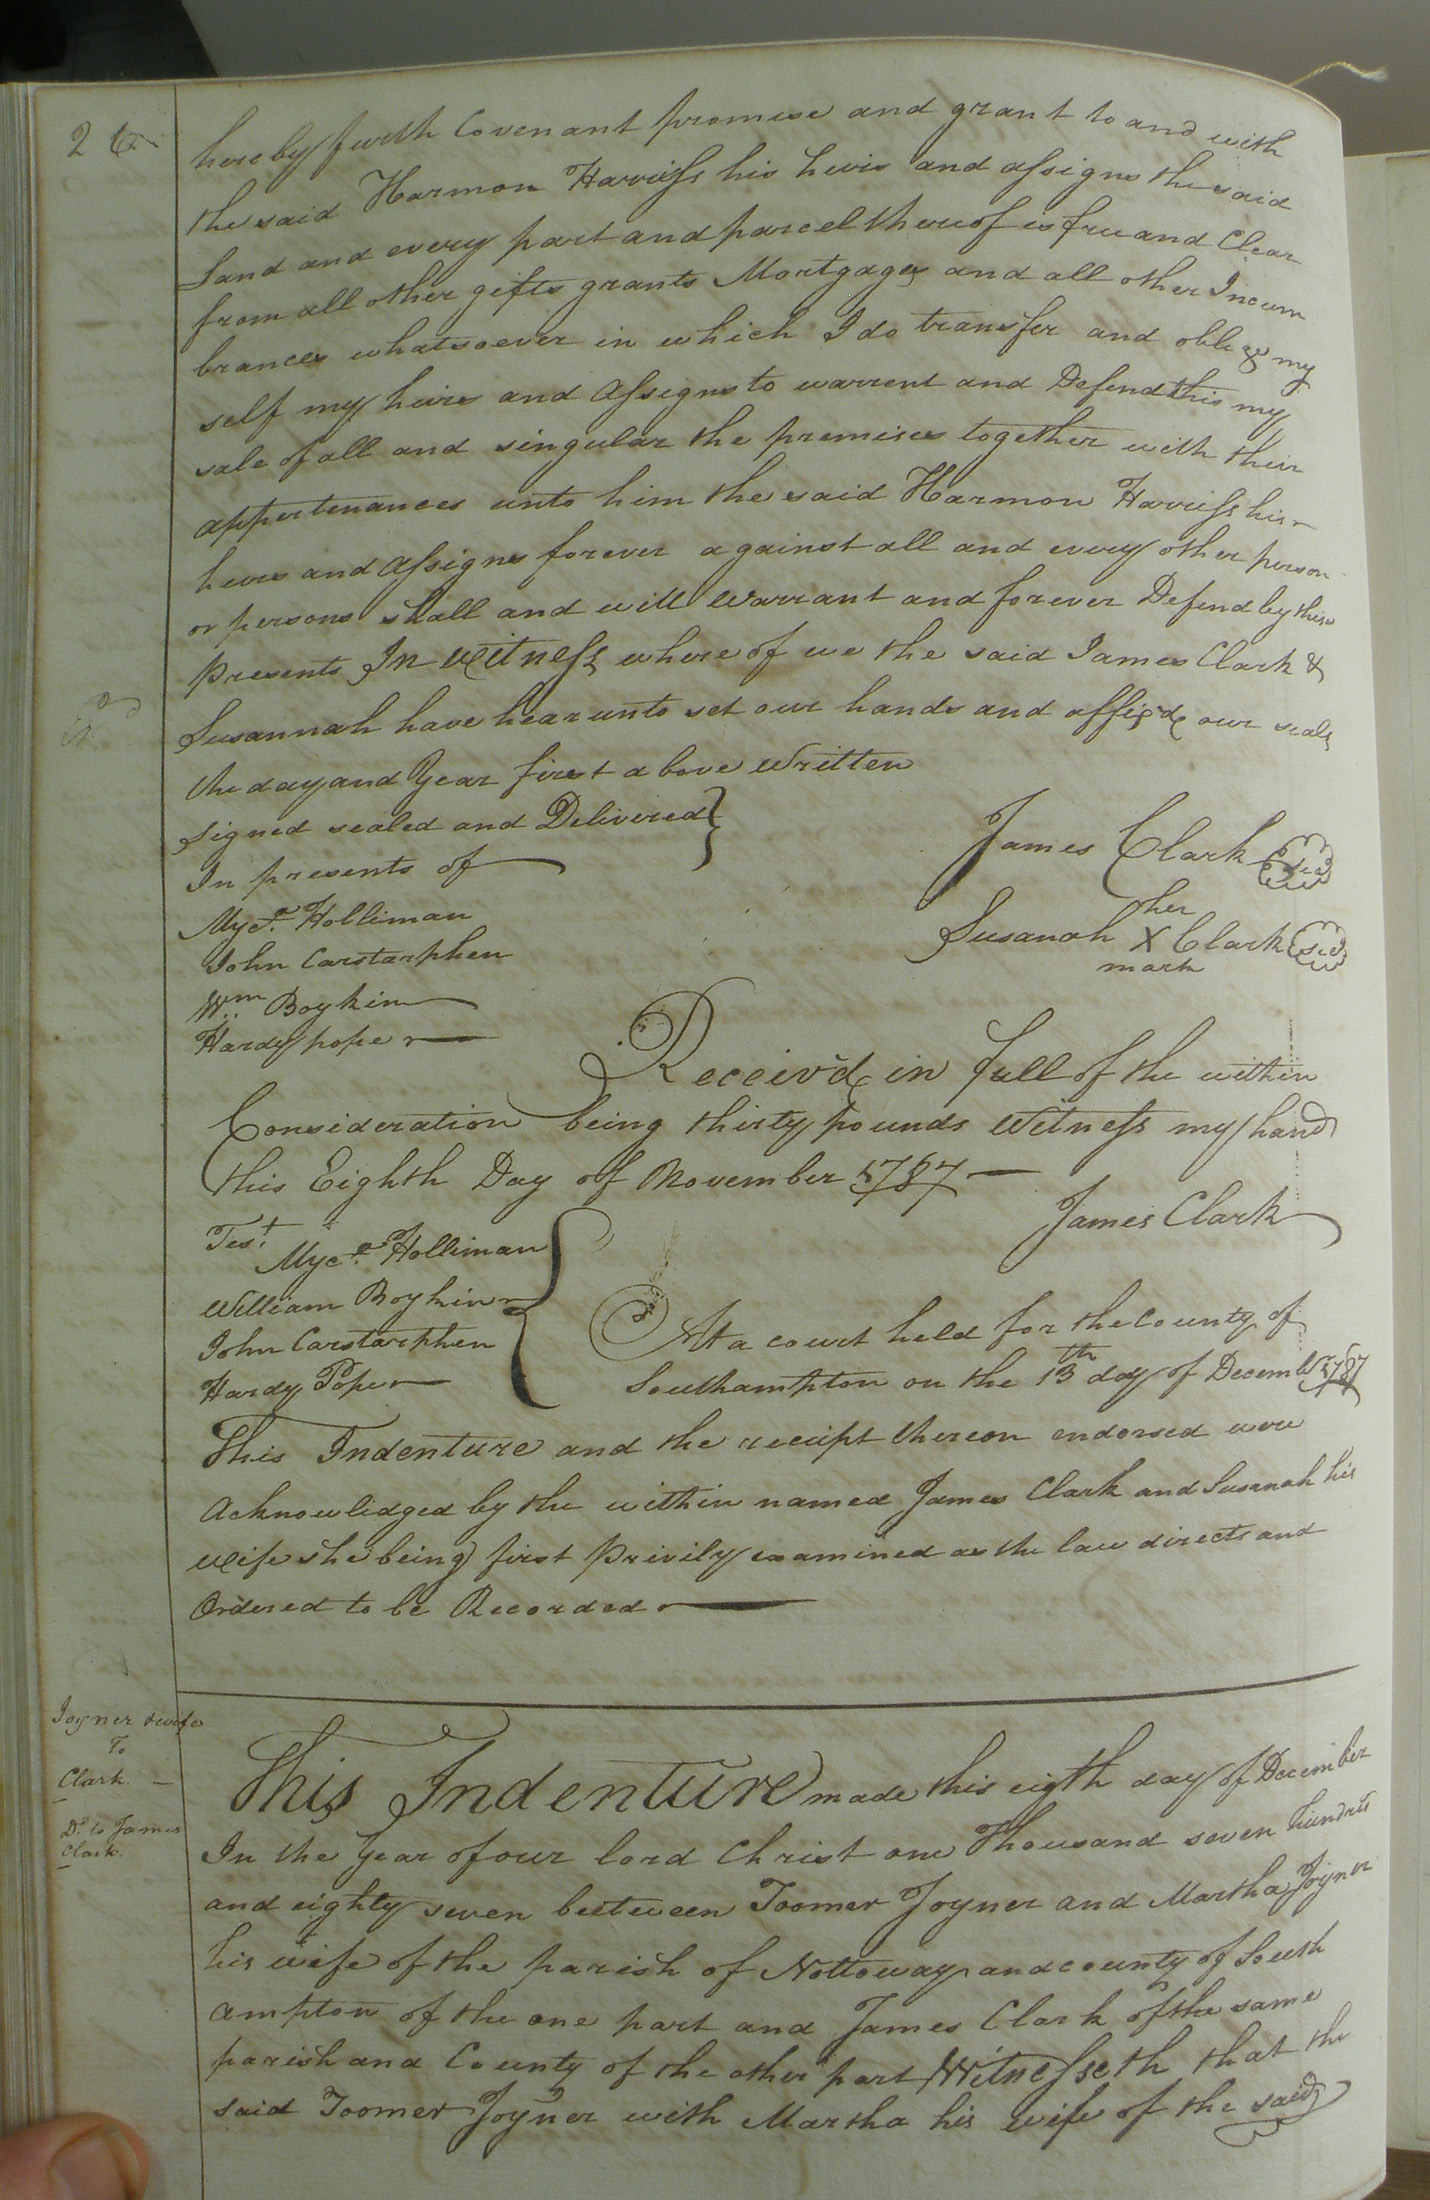 26
hereby furth Covenant promise and grant to and with
the said Harmon Harriss his heirs and assigns the said
Land and every part and parcel thereof is free and Clear
from all other gifts grants Mortgages and all other Incum
brances whatsoever in which I do transfer and oblige my
self my heirs and Assigns to warrent and Defend this my
sale of all and singular the premises together with their
appertenances unto him the said Harmon Harriss his
heirs and assigns forever against all and every other person
or persons shall and will Warrant and forever Defend by these
presents In Witness whereof we the said James Clark &
Susannah have hearunto set our hands and affix'd our seals
the day and Year first above Written
Signed sealed and Delivered
In presents of
James Clark
her
Susanah X Clark
mark
Holliman
John Carstarphen
Wm. Boykin
Hardy pope
Receiv'd in full of the within
Consideration being thirty pounds Witness my hand
this Eighth Day of November 1787
James Clark
Test
Holliman
William Boykin
John Carstarphen
Hardy Pope
At a court held for the County of
Southampton on the 13th day of Decembr 1787
This Indenture and the receipt thereon endorsed were
Acknowlidged by the within named James Clark and Susanah his
wife she being first Privily examined as the law directs and
Ordered to be Recorded
Joyner & wife
To
Clark
Dd. to James
Clark.
This Indenture made this eigth day of December
In the Year of our lord Christ one Thousand seven hundred
and eighty seven between Toomer Joyner and Martha Joyner
his wife of the parish of Nottoway and county of South
ampton of the one part and James Clark of the same
parish and County of the other part Witnesseth that the
said Toomer Joyner with Martha his wife of the said